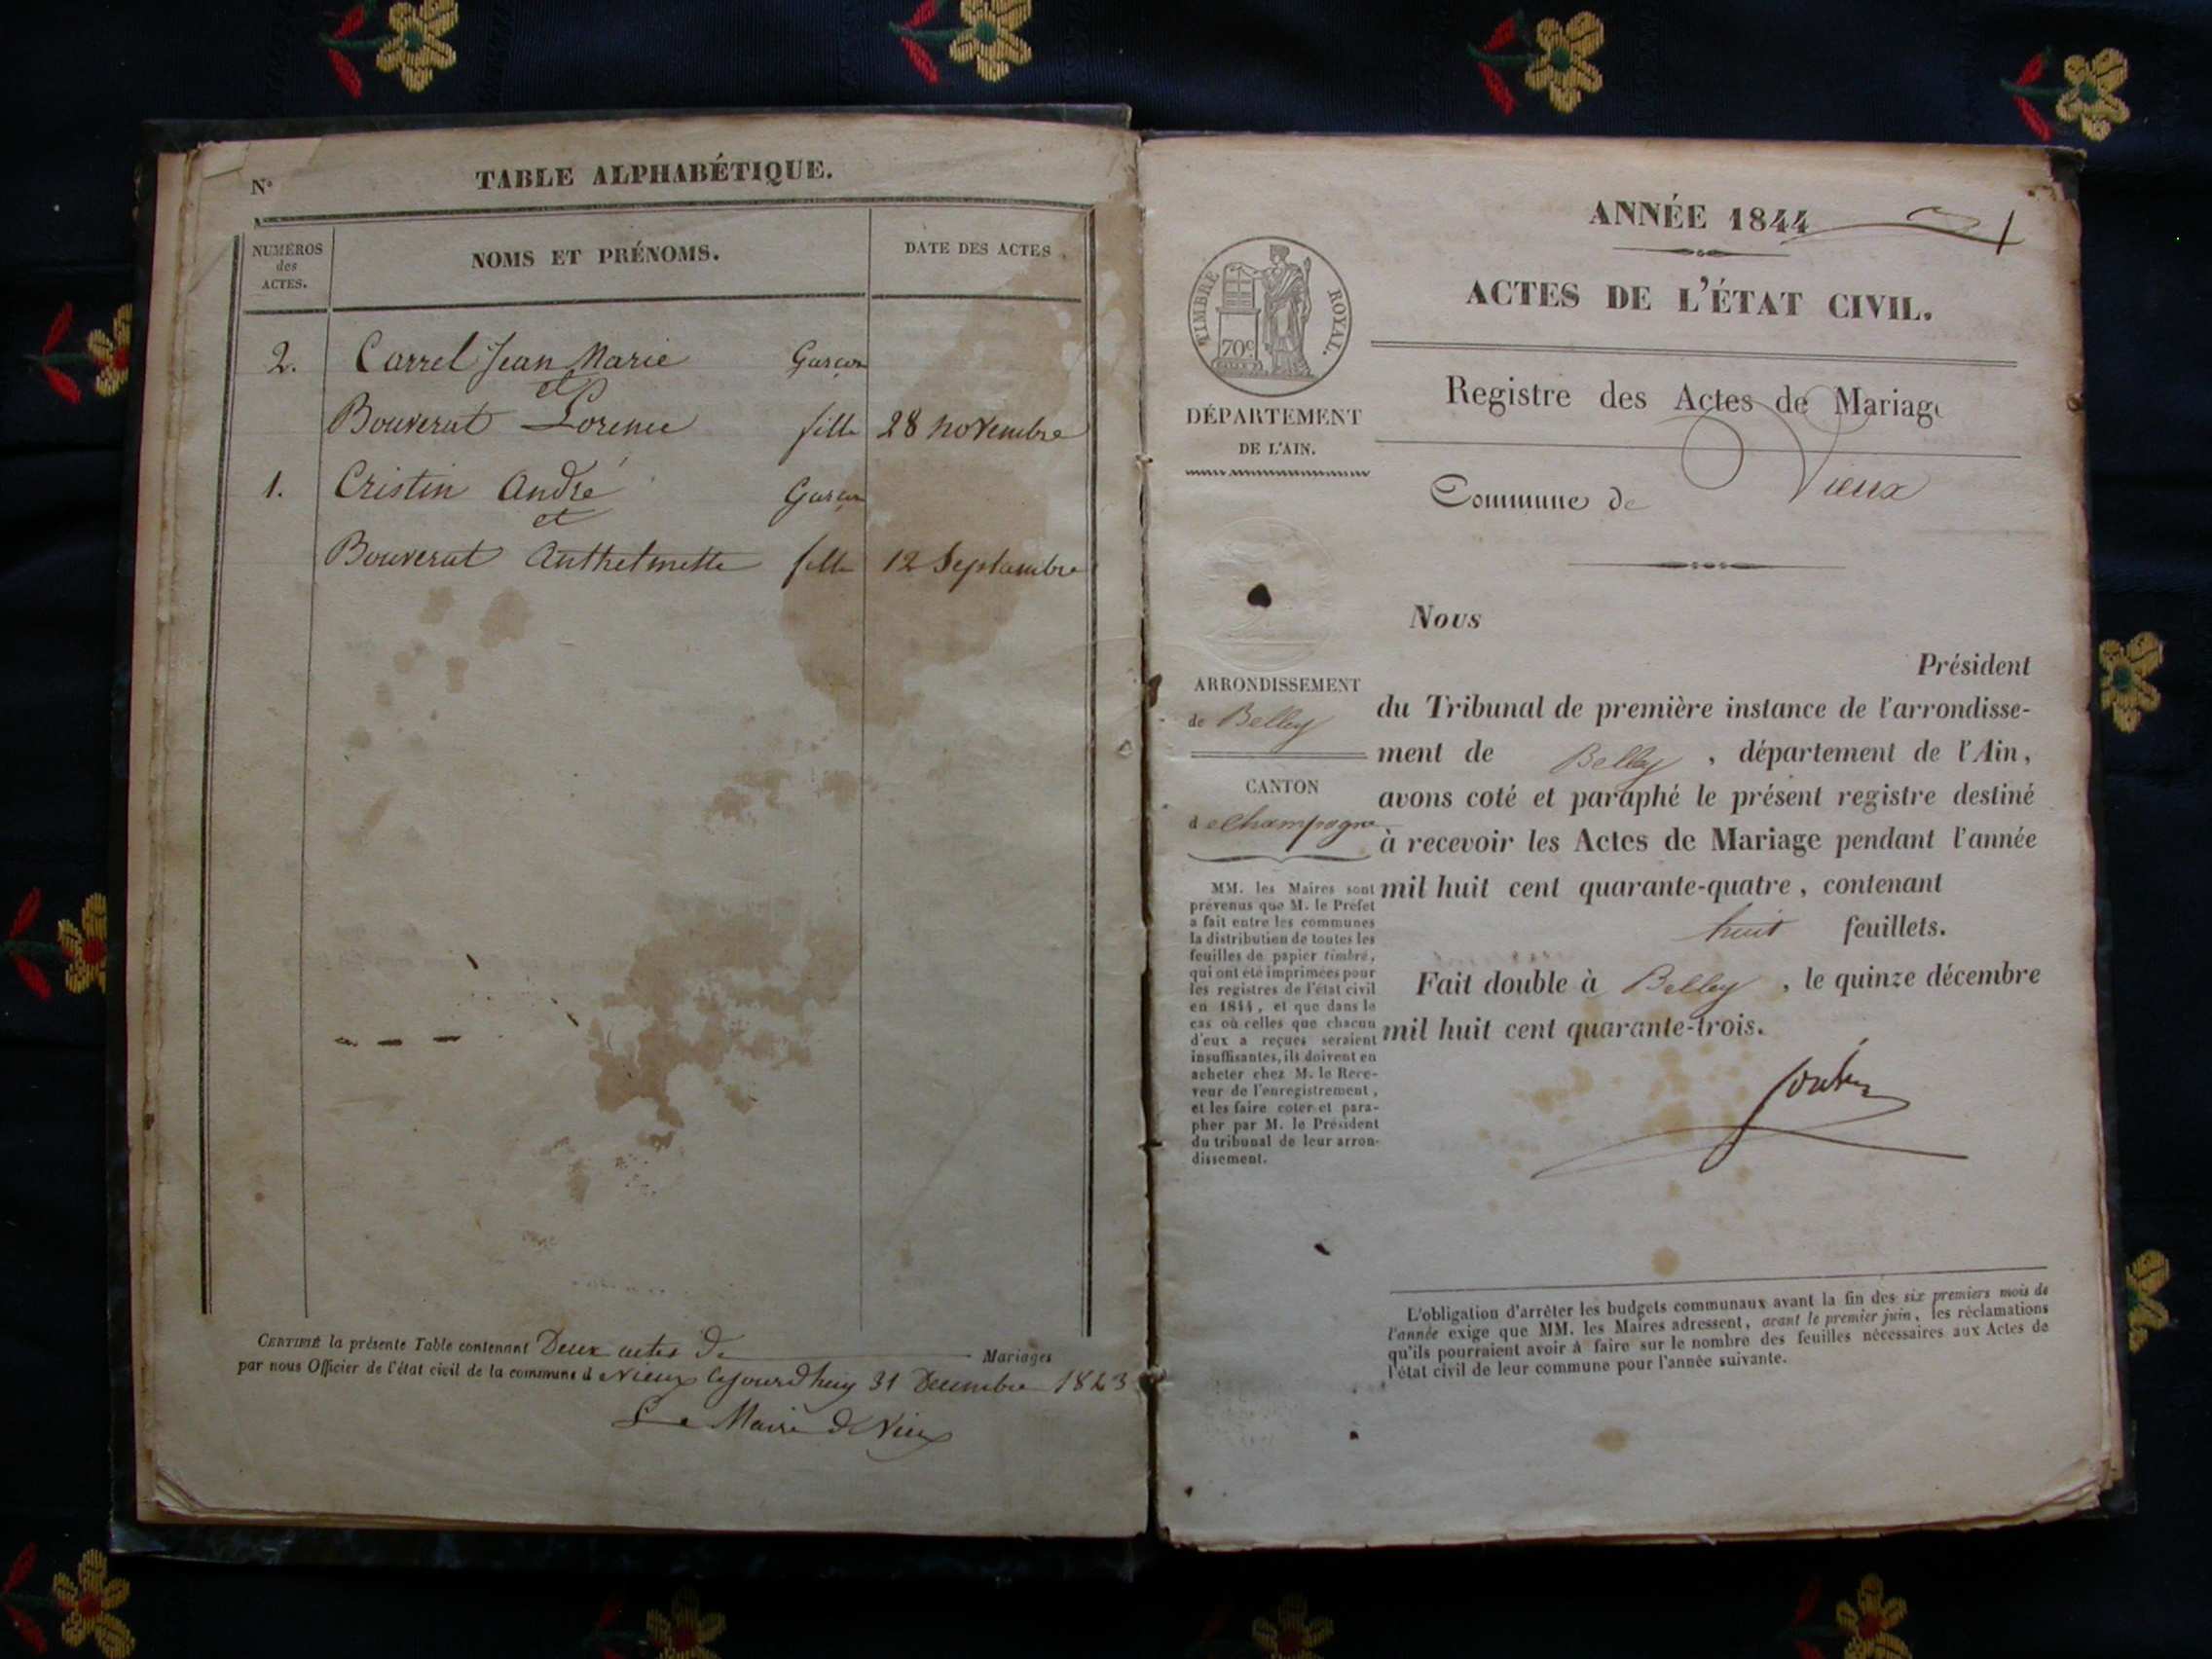 N°
TABLE ALPHABÉTIQUE.
NUMÉROS
des
ACTES.
NOMS ET PRÉNOMS.
DATE DES ACTES
2. Carrel Jean Marie Garçon
et
Bouverat Lorence fille 28 novembre
1. Cristin André Garçon
et
Bouverat Anthelmette fille 12 Septembre
CERTIFIÉ la présente Table contenant Deux actes de Mariages
par nous Officier de l'état civil de la commune de Vieux cejourdhuy 31 Decembre 1843
Le Maire de Vieux
ANNÉE 1844
1
ACTES DE L'ÉTAT CIVIL.
TIMBRE ROYAL.
70c
Registre des Actes de Mariage
DÉPARTEMENT
DE L'AIN.
Commune de Vieux
Nous
Président
du Tribunal de première instance de l'arrondisse-
ment de Belley, département de l'Ain,
avons coté et paraphé le présent registre destiné
à recevoir les Actes de Mariage pendant l'année
mil huit cent quarante-quatre, contenant
huit feuillets.
Fait double à Belley, le quinze décembre
mil huit cent quarante-trois.
ARRONDISSEMENT
de Belley
CANTON
de Champagne
MM. les Maires sont
prévenus que M. le Préfet
a fait entre les communes
la distribution de toutes les
feuilles de papier timbré,
qui ont été imprimées pour
les registres de l'état civil
en 1844, et que dans le
cas où celles que chacun
d'eux a reçues seraient
insuffisantes, ils doivent en
acheter chez M. le Rece-
veur de l'enregistrement,
et les faire coter et para-
pher par M. le Président
du tribunal de leur arron-
dissement.
L'obligation d'arrêter les budgets communaux avant la fin des six premiers mois de
l'année exige que MM. les Maires adressent, avant le premier juin, les réclamations
qu'ils pourraient avoir à faire sur le nombre des feuilles nécessaires aux Actes de
l'état civil de leur commune pour l'année suivante.